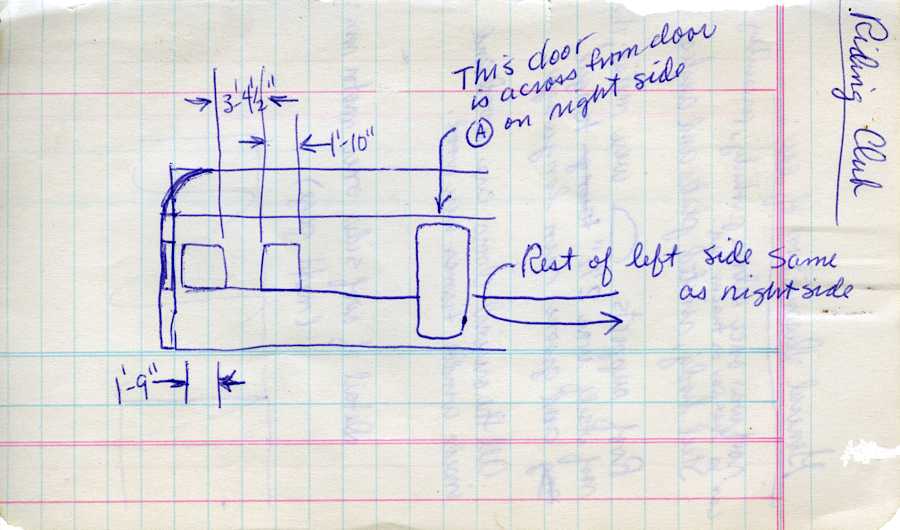 Riding Club
This door
is across from door
Ⓐ on right side
3'-4½"
1'-10"
Rest of left side same
as right side
1'-9"